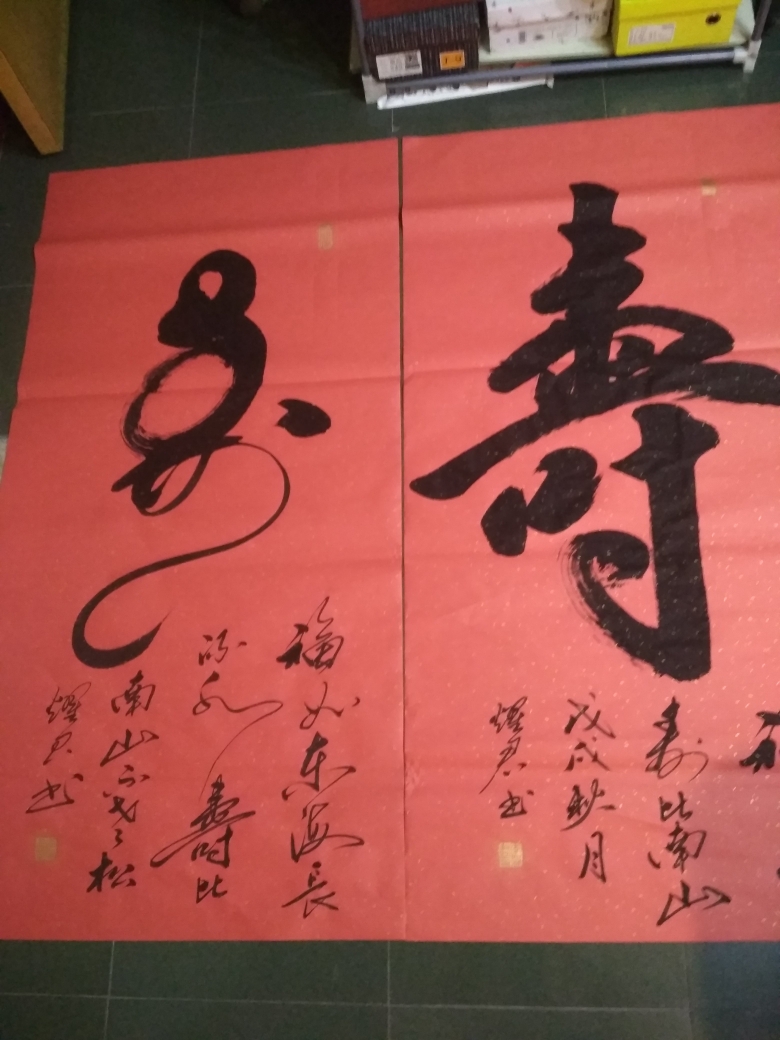 壽
壽比南山
戊戌秋月
耀君书
寿
福如东海长
流水 壽比
南山不老松
耀君书